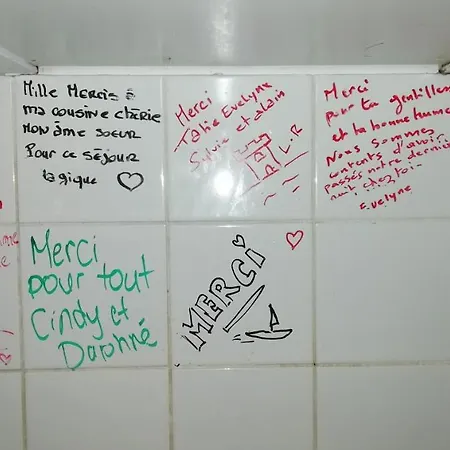 Mille Mercis à
ma cousine chérie
Mon âme soeur
Pour ce séjour
Magique
Merci
Tatie Evelyne
Sylvie et alain
Merci
pour ta gentilless
et ta bonne hume
Nous sommes
contents d'avoir
passés notre dernière
nuit chez toi
Evelyne
Merci
pour tout
Cindy et
Daphné
MERCI